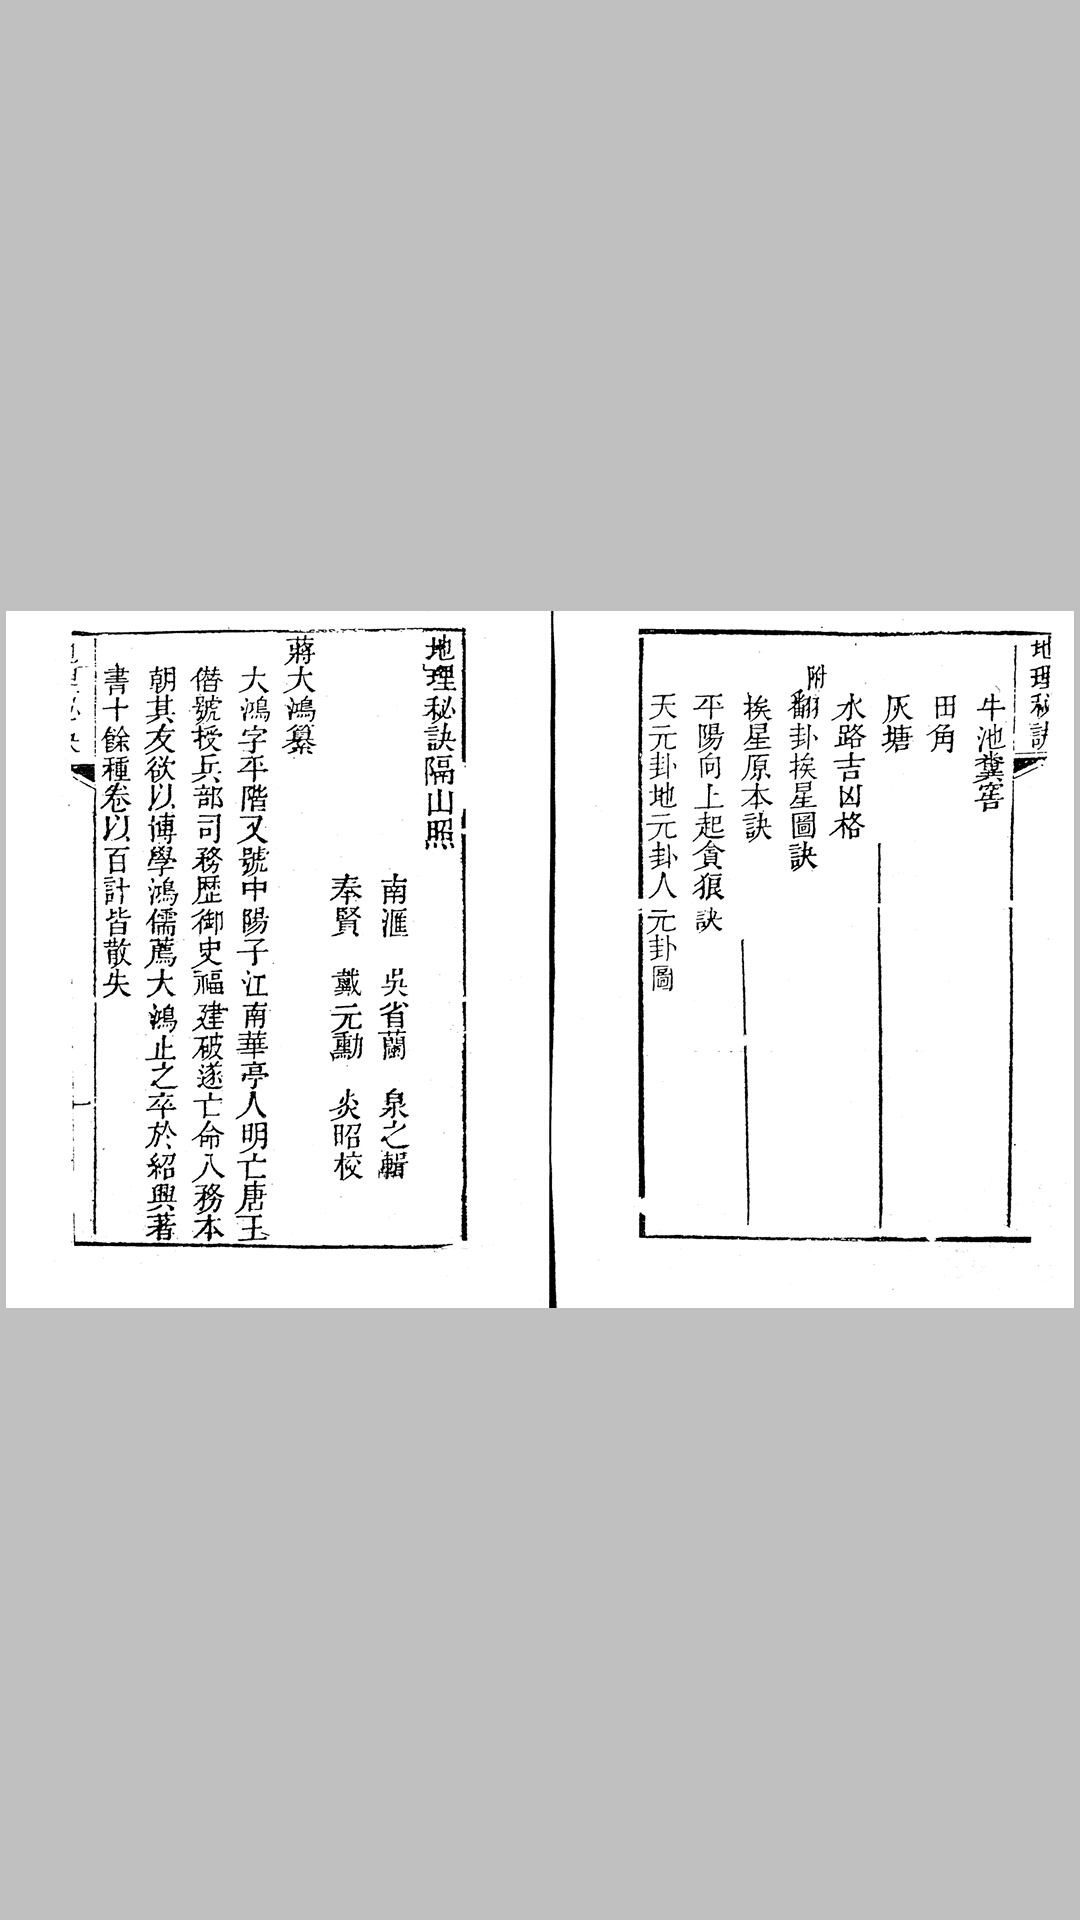 地理秘訣
牛池糞窖
田角
灰塘
水路吉凶格
附
翻卦挨星圖訣
挨星原本訣
平陽向上起貪狼訣
天元卦地元卦人元卦圖
地理秘訣隔山照
南滙 吳省蘭 泉之輯
奉賢 戴元勳 炎昭校
蔣大鴻纂
大鴻字平階又號中陽子江南華亭人明亡唐王
僭號授兵部司務歴御史福建破遂亡命入務本
朝其友欲以博學鴻儒薦大鴻止之卒於紹興著
書十餘種卷以百計皆散失
一